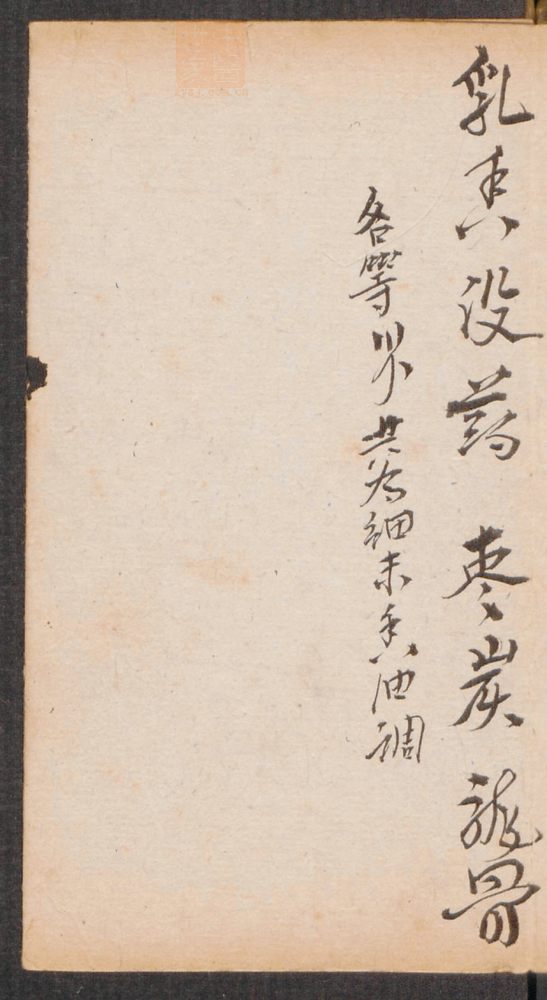 乳香没药 枣炭 龙骨
各等分 共为细末香油调